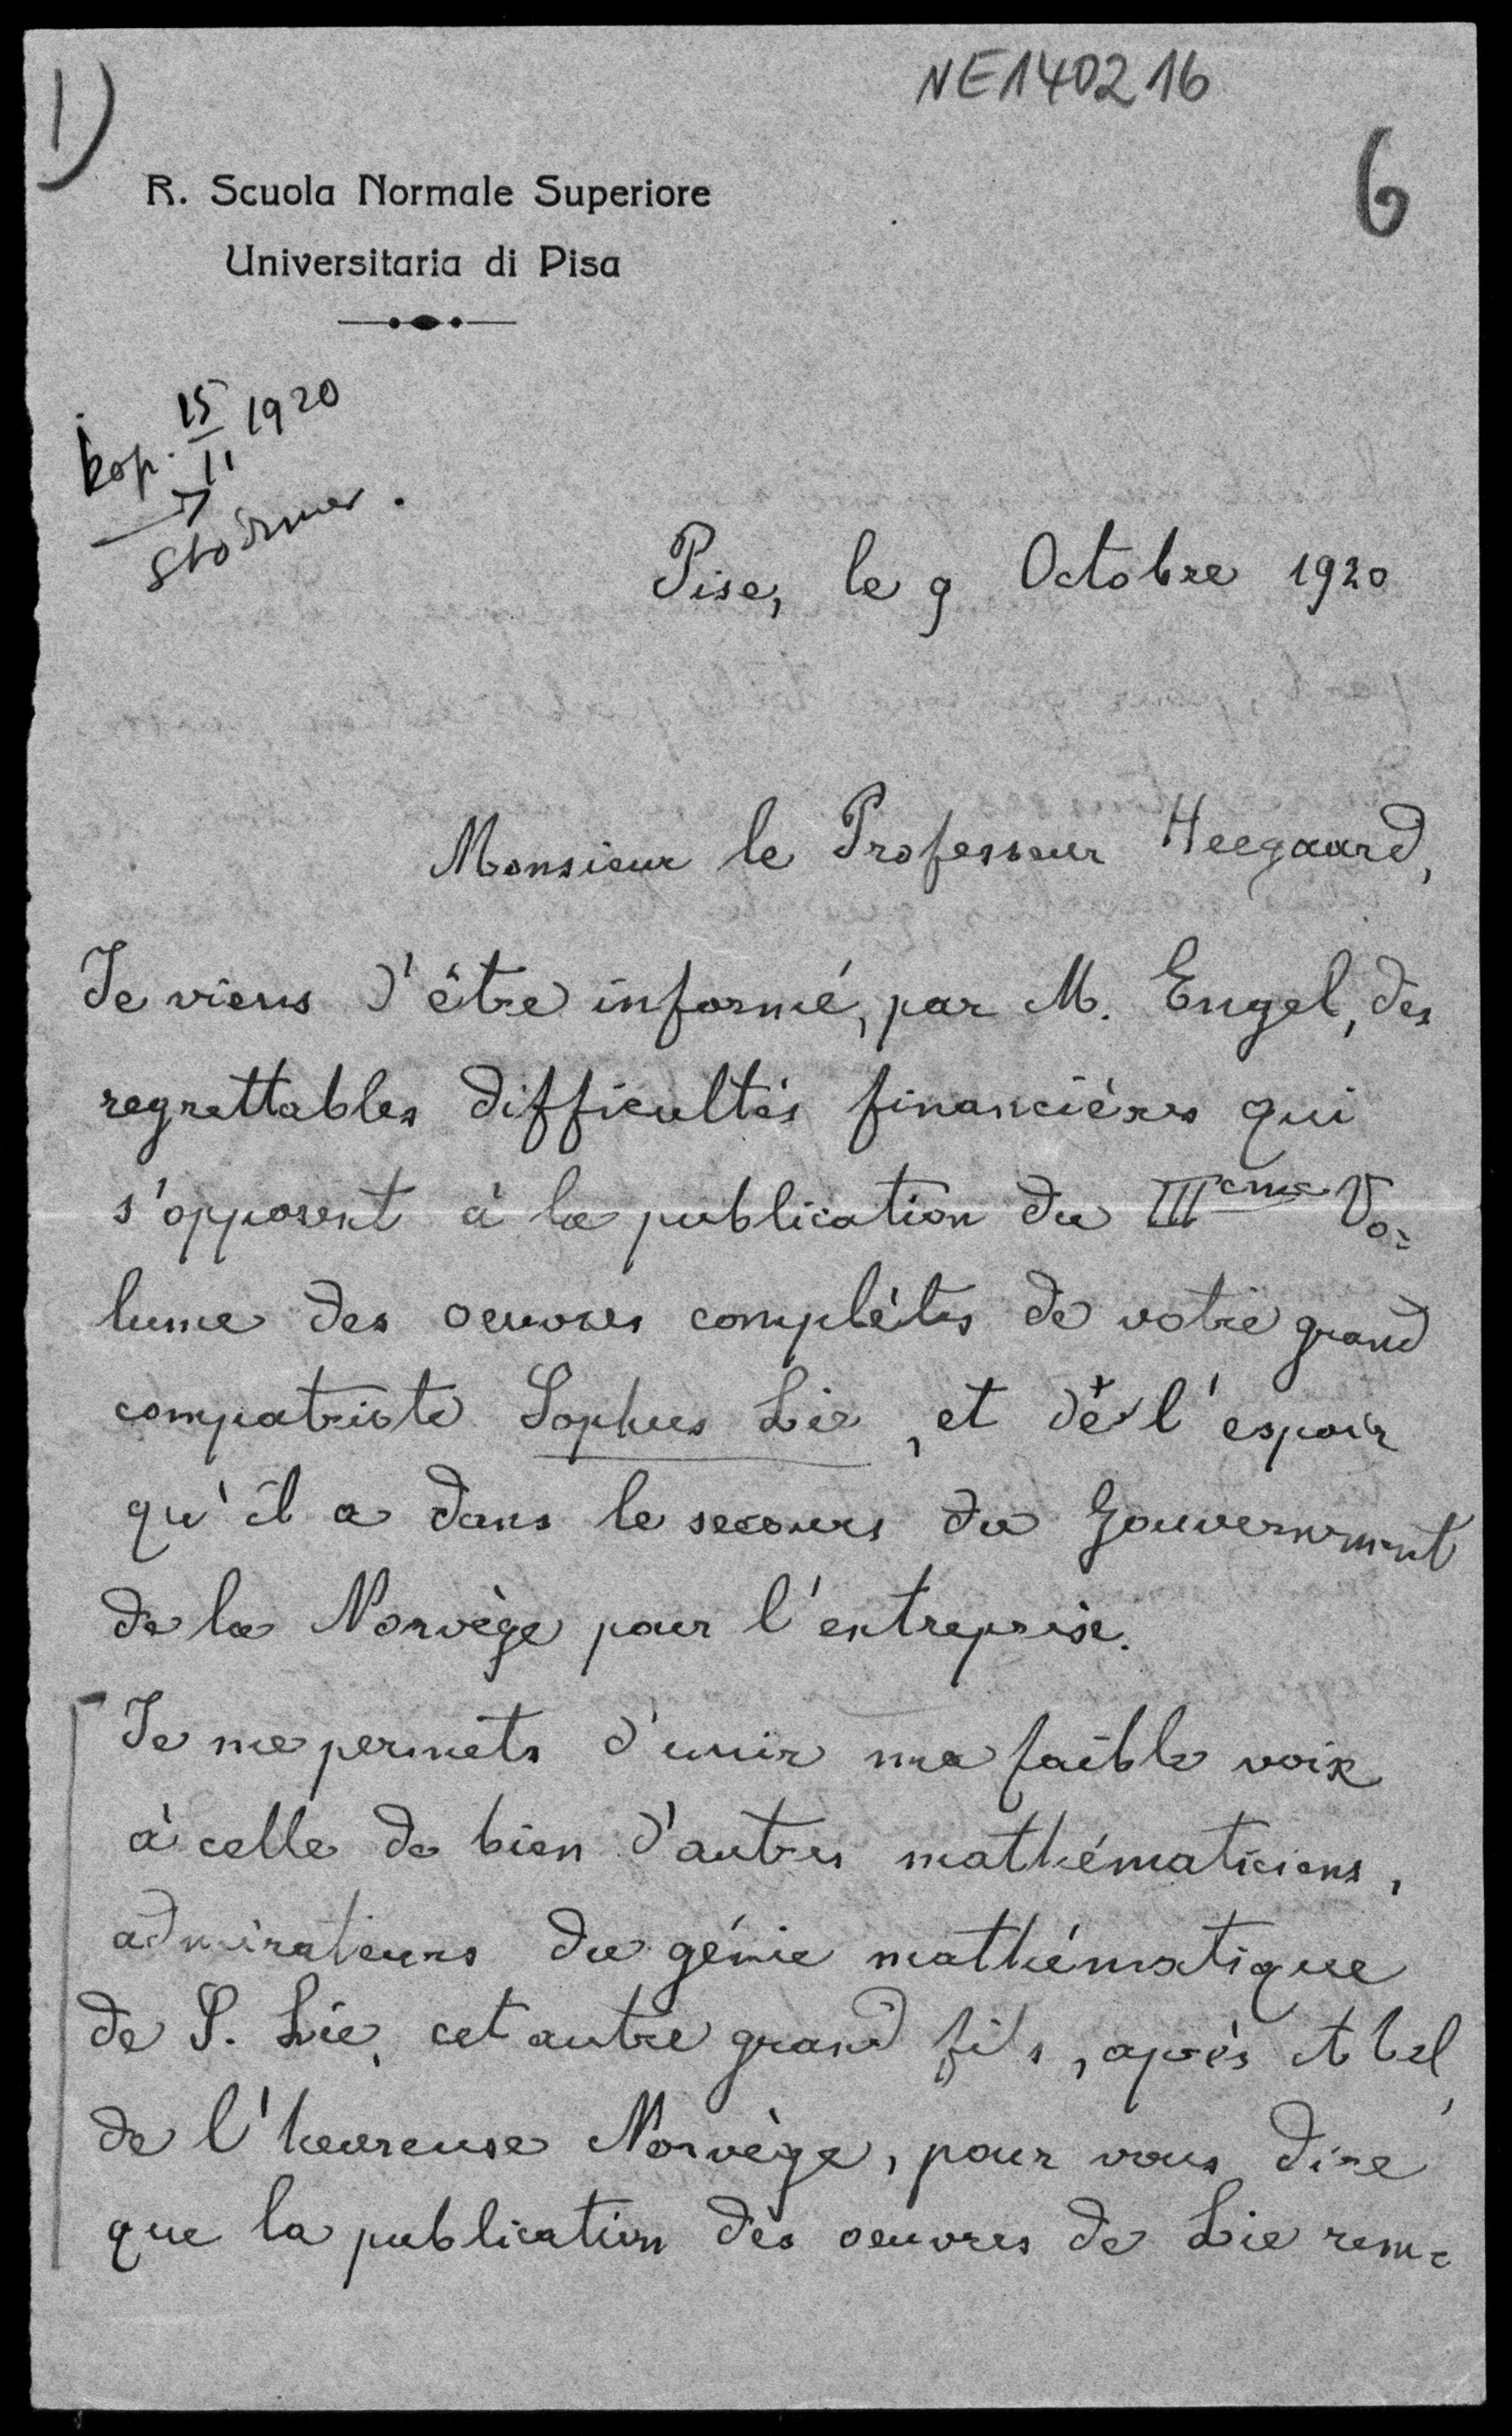 NE140216
1)
6
R. Scuola Normale Superiore
Universitaria di Pisa
kop. 15/11 1920
→ Størmer.
Pise, le 9 Octobre 1920
Monsieur le Professeur Heegaard,
Je viens d'être informé, par M. Engel, des
regrettables difficultés financières qui
s'opposent à la publication du IIIème Vo-
lume des oeuvres complètes de votre grand
compatriote Sophus Lie, et de l'espoir
qu'il a dans le secours du Gouvernement
de la Norvège pour l'entreprise.
Je me permets d'unir ma faible voix
à celle de bien d'autres mathématiciens,
admirateurs du génie mathématique
de S. Lie, cet autre grand fils, après Abel,
de l'heureuse Norvège, pour vous dire
que la publication des oeuvres de Lie rem-